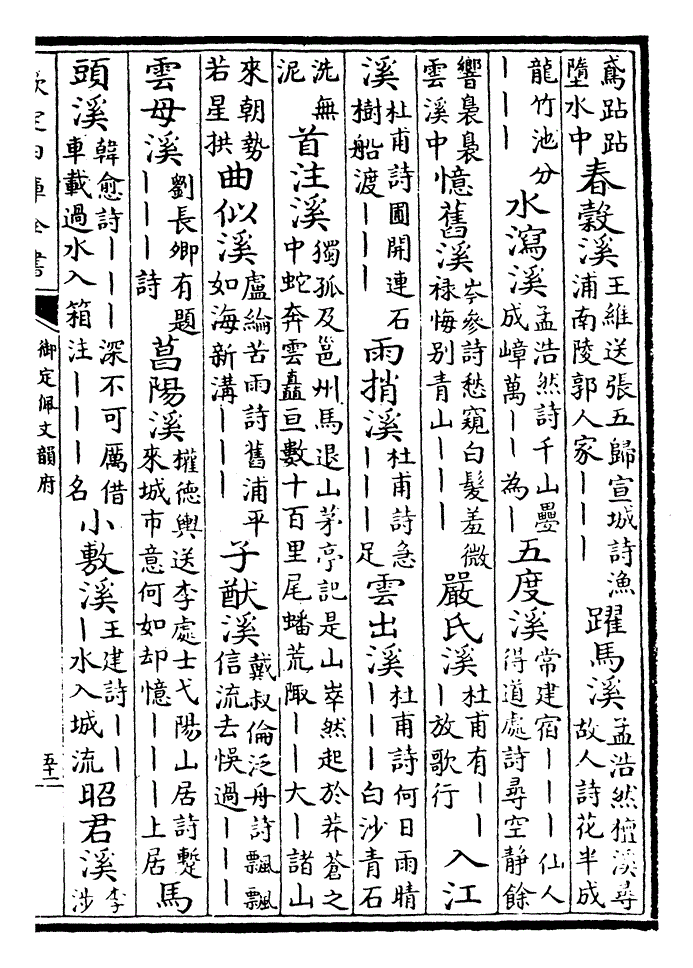 鳶跕跕墮水中春穀溪王維送張五歸宣城詩漁浦南陵郭人家｜｜｜躍馬溪孟浩然檀溪尋故人詩花半成
龍竹池分｜｜｜水瀉溪孟浩然詩千山疊成嶂萬｜｜為｜五度溪常建宿｜｜｜仙人得道處詩尋空静餘
響裊裊雲溪中憶舊溪岑參詩愁窺白髮羞微禄悔别青山｜｜｜嚴氏溪杜甫有｜｜｜放歌行入江
溪杜甫詩圃開連石樹船渡｜｜｜雨捎溪杜甫詩急｜｜｜足雲出溪杜甫詩何日雨晴｜｜｜白沙青石
洗無泥首注溪獨孤及邕州馬退山茅亭記是山崒然起於莽蒼之中蛇奔雲矗亘數十百里尾蟠荒陬｜｜大｜諸山
來朝勢若星拱曲似溪盧綸苦雨詩舊浦平如海新溝｜｜｜子猷溪戴叔倫泛舟詩飄飄信流去悞過｜｜｜
雲母溪劉長卿有題｜｜｜詩菖陽溪權德輿送李處士弋陽山居詩蹔來城市意何如却憶｜｜｜上居馬
頭溪韓愈詩｜｜｜深不可厲借車載過水入箱注｜｜｜名小敷溪王建詩｜｜｜水入城流昭君溪李涉
欽定四庫全書
御定佩文韻府
五十二